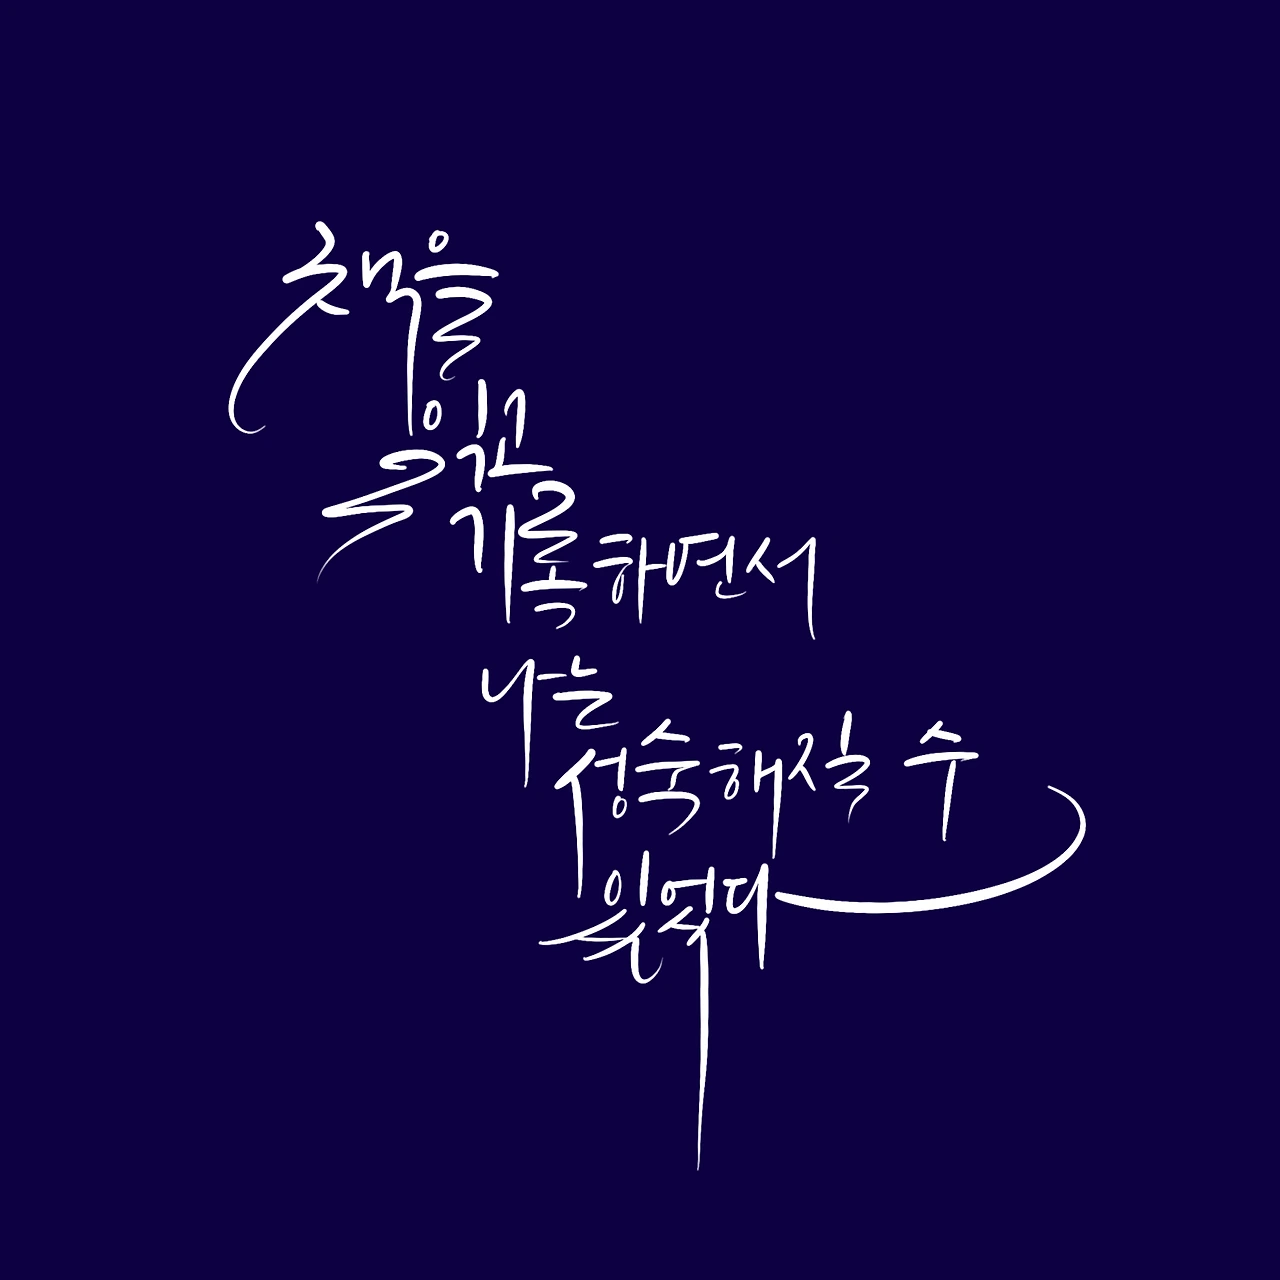 책을
읽고
기록하면서
나는
성숙해질 수
있었다